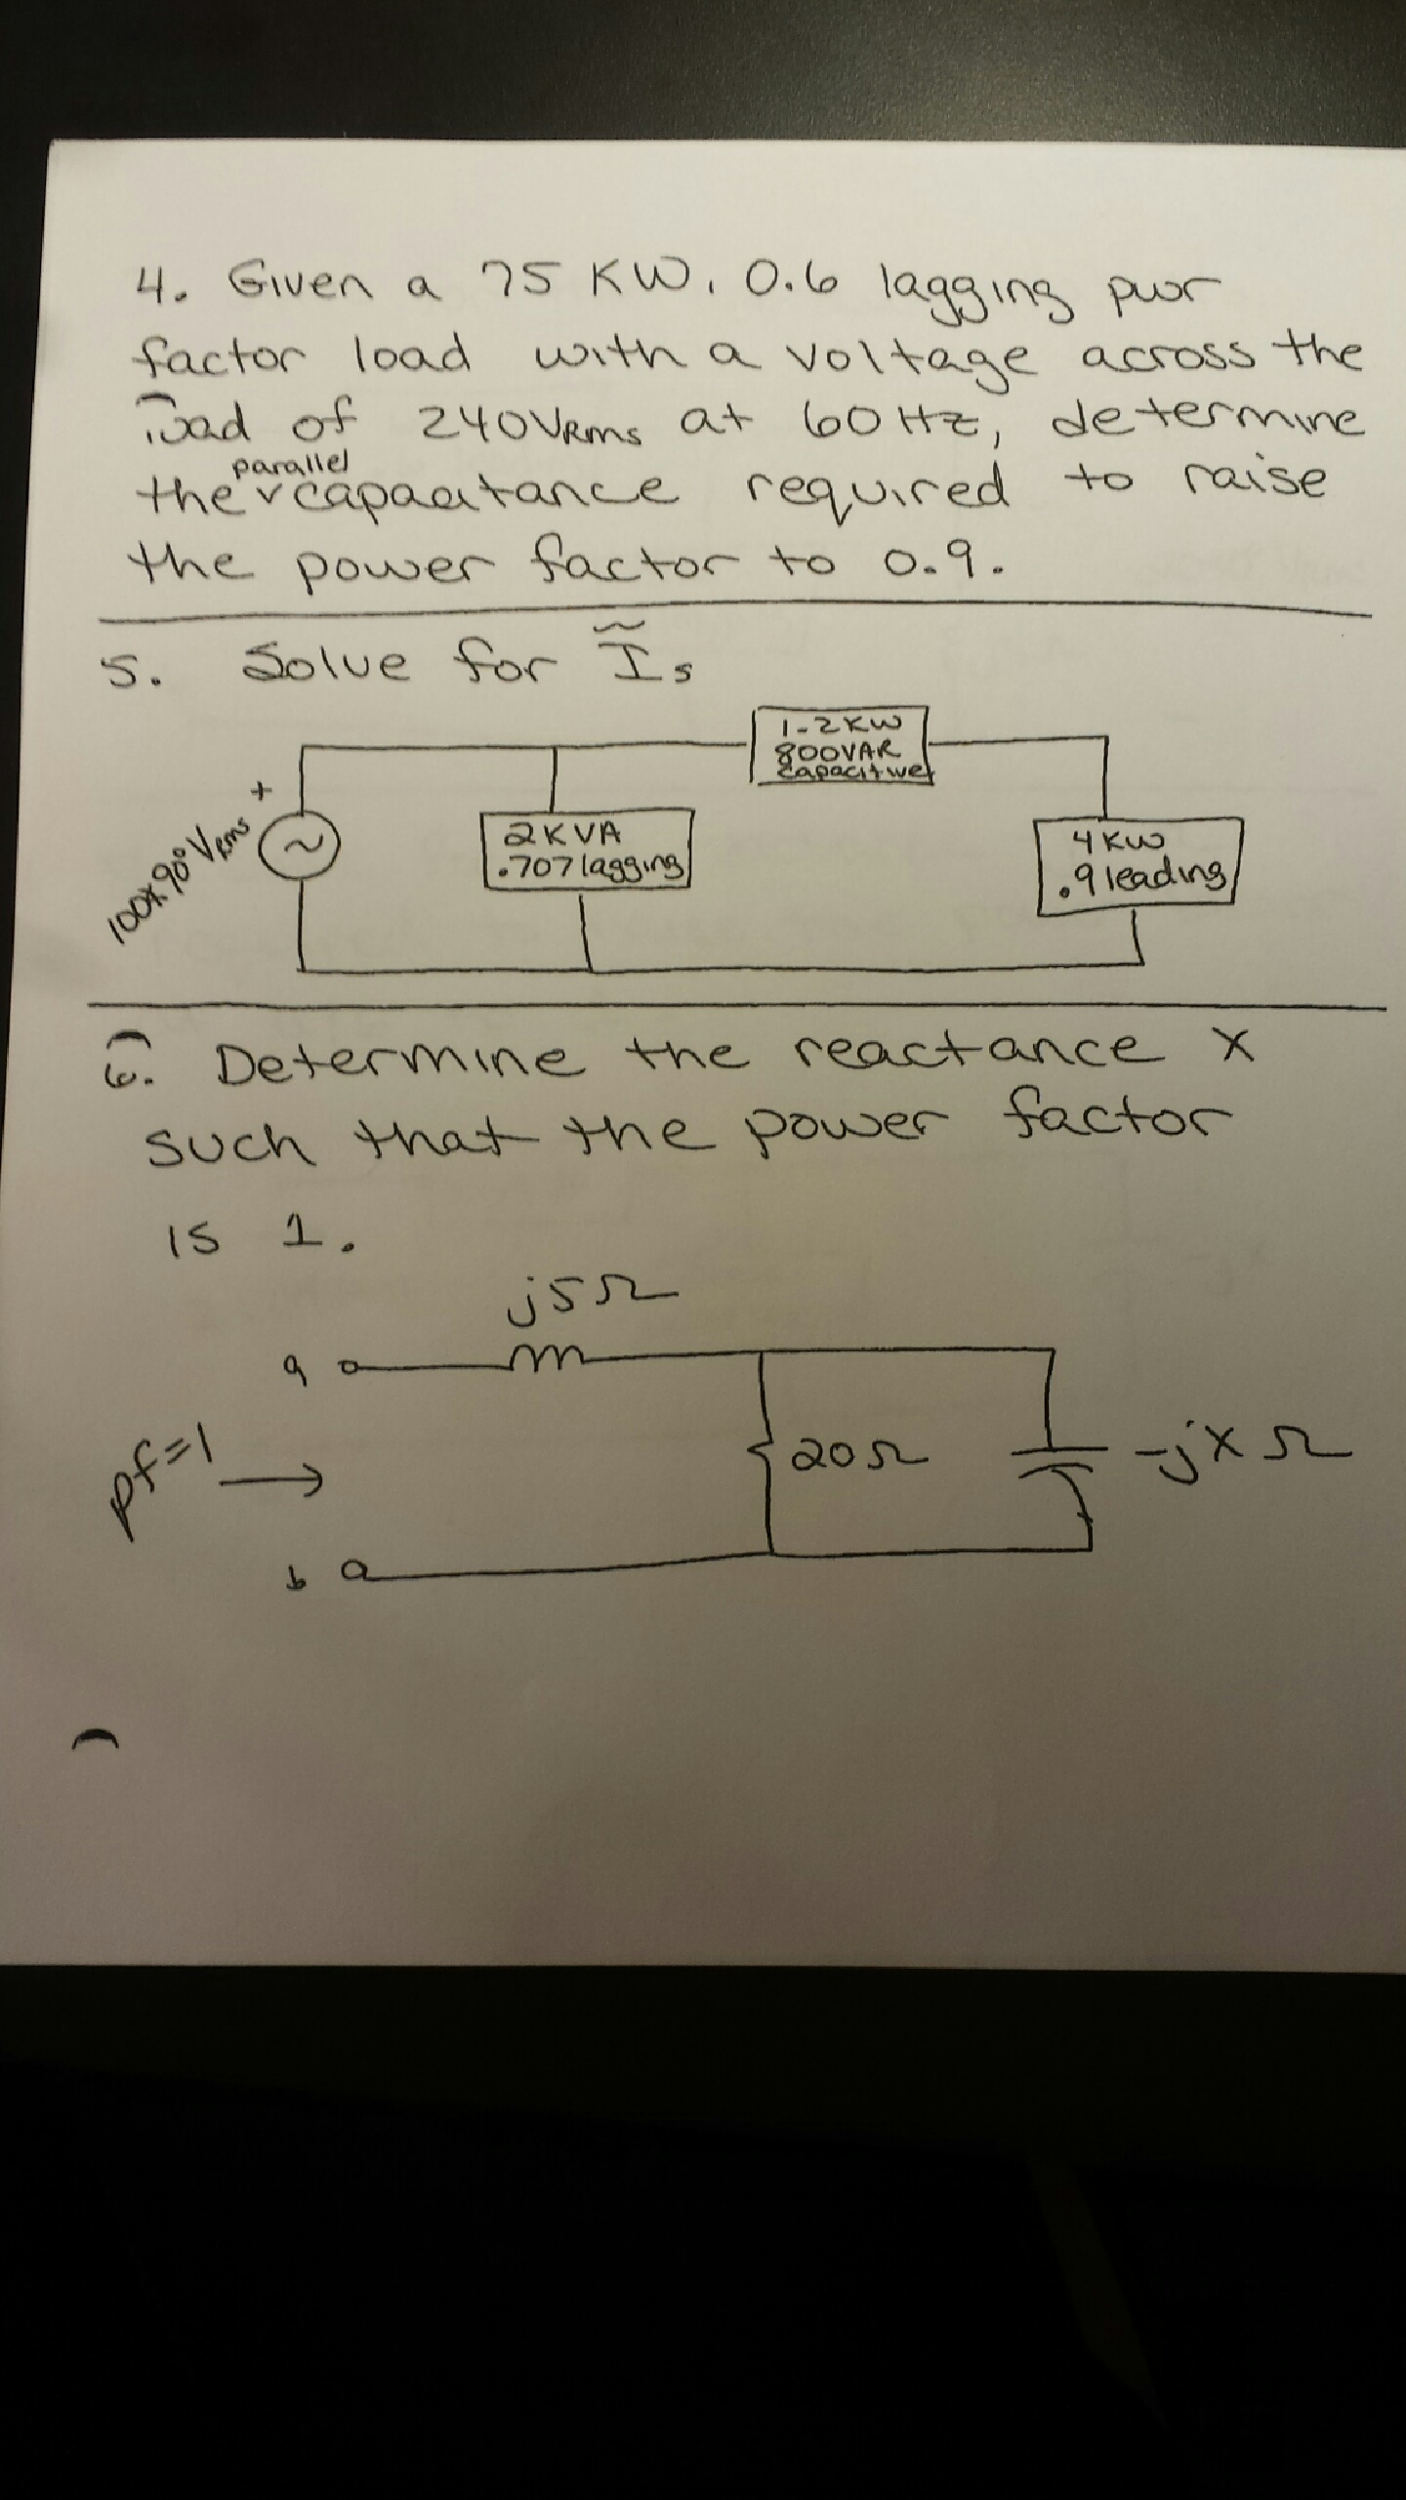 4. Given a 75 KW, 0.6 lagging pwr
factor load with a voltage across the
load of 240VRMS at 60Hz, determine
parallel
the capacitance required to raise
the power factor to 0.9.
5. Solve for Ĩs
1.2KW
800VAR
capacitive
+
100∠90° VRMS
2KVA
.707 lagging
4KW
.9 leading
6. Determine the reactance X
such that the power factor
is 1.
j5Ω
a
pf=1
20Ω
-jXΩ
b